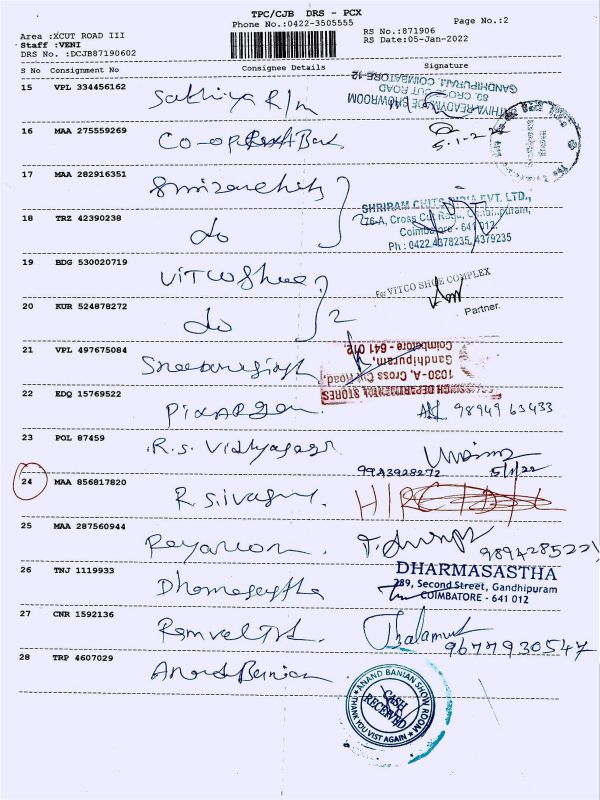 TPC/CJB DRS - PCX
Phone No.:0422-3505555 Page No.:2
Area :XCUT ROAD III RS No.:871906
Staff :VENI RS Date:05-Jan-2022
DRS No. :DCJB87190602
S No Consignment No Consignee Details Signature
15 VPL 334456162 Sathiya R/m
SHOWROOM
89, CROSS CUT ROAD
GANDHIPURAM, COIMBATORE-12
16 MAA 275559269 CO-op Bank 5-1-22
17 MAA 282916351
SHRIRAM CHITS INDIA PVT. LTD.,
276-A, Cross Cut Road, Gandhipuram,
Coimbatore - 641 012.
Ph : 0422 4378235, 4379235
18 TRZ 42390238 do 2
19 BDG 530020719 VITCO Shoe
For VITCO SHOE COMPLEX
Partner.
20 KUR 524878272 do 2
21 VPL 497675084
DEPARTMENTAL STORES
1030-A, Cross Cut Road,
Gandhipuram,
Coimbatore - 641 012
22 EDQ 15769522 98949 63433
23 POL 87459 R.S. Vidhyasagar
9943928272 5/1/22
24 MAA 856817820 R. Sivagur.
25 MAA 287560944 9894285221
26 TNJ 1119933 Dharmasastha
DHARMASASTHA
289, Second Street, Gandhipuram
COIMBATORE - 641 012
27 CNR 1592136 9677930547
28 TRP 4607029 Anand Banian
ANAND BANIAN SHOW ROOM
CASH RECEIVED
THANK YOU VIST AGAIN